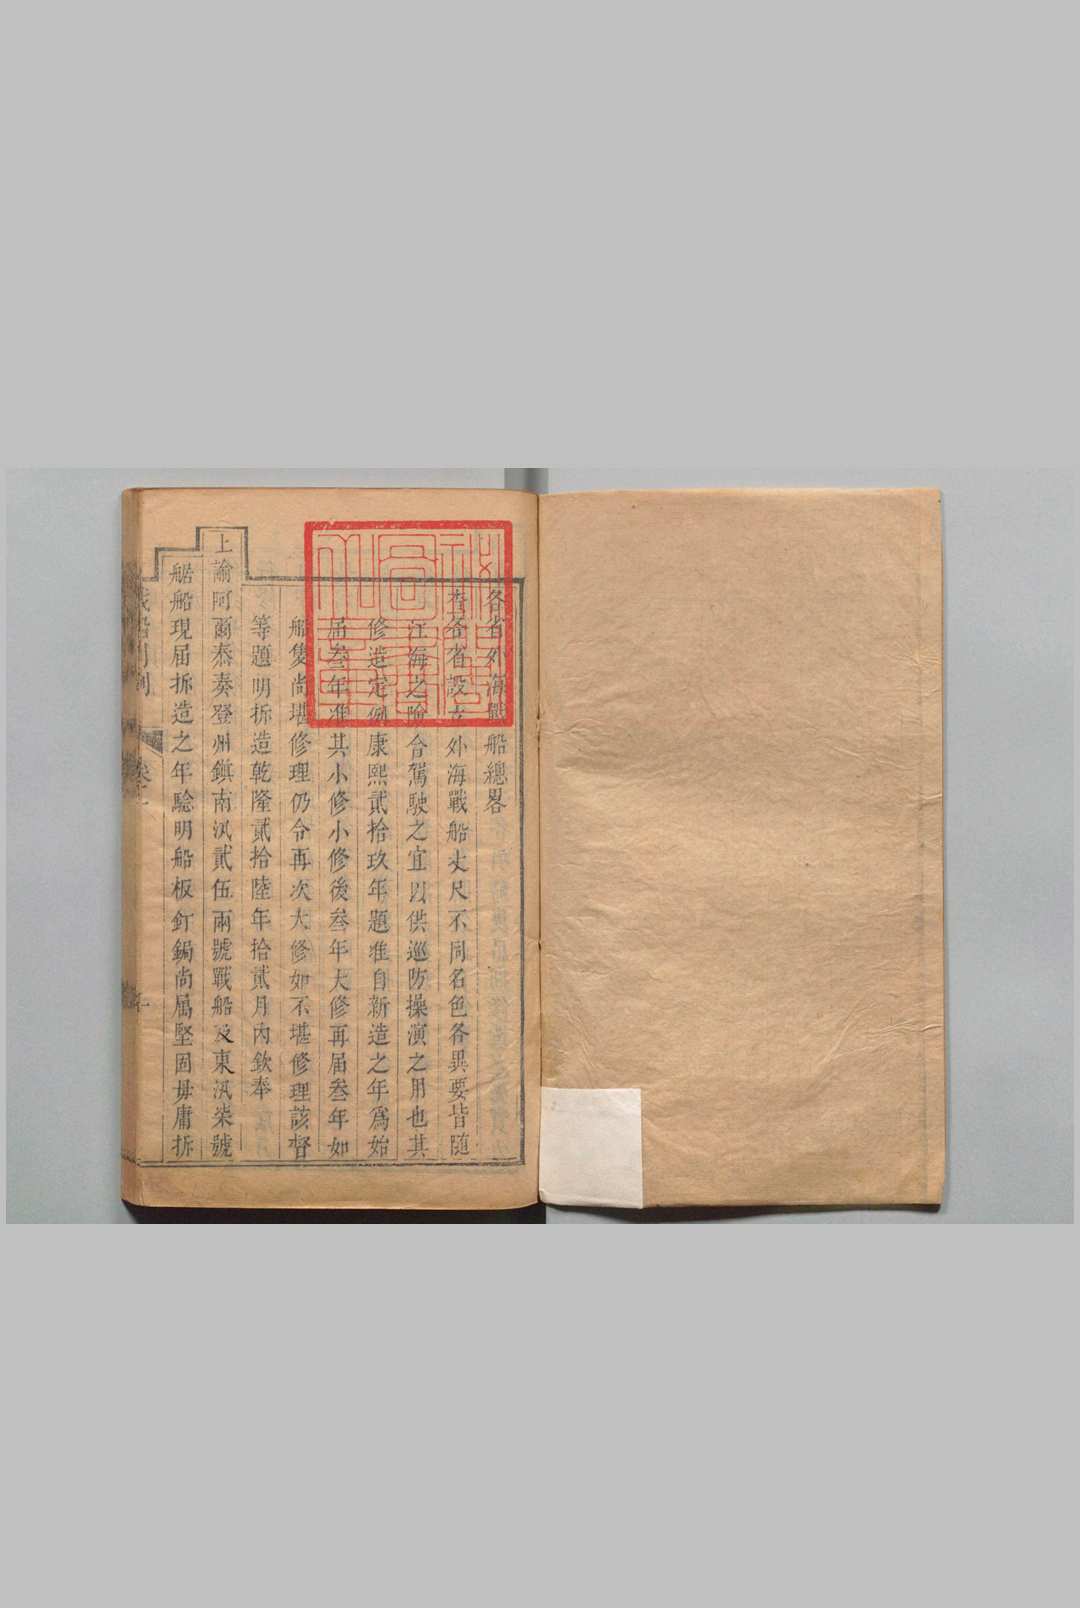 各省外海戰船總畧
查各省設立外海戰船丈尺不同名色各異要皆隨
江海之險合駕駛之宜以供巡防操演之用也其
修造定例康熙貳拾玖年題准自新造之年爲始
届叁年准其小修小修後叁年大修再届叁年如
船隻尚堪修理仍令再次大修如不堪修理該督
等題明拆造乾隆貳拾陸年拾貳月內欽奉
上諭阿爾泰奏登州鎮南汛貳伍兩號戰船及東汛柒號
艍船現届拆造之年騐明船板釘鋦尚屬堅固毋庸拆